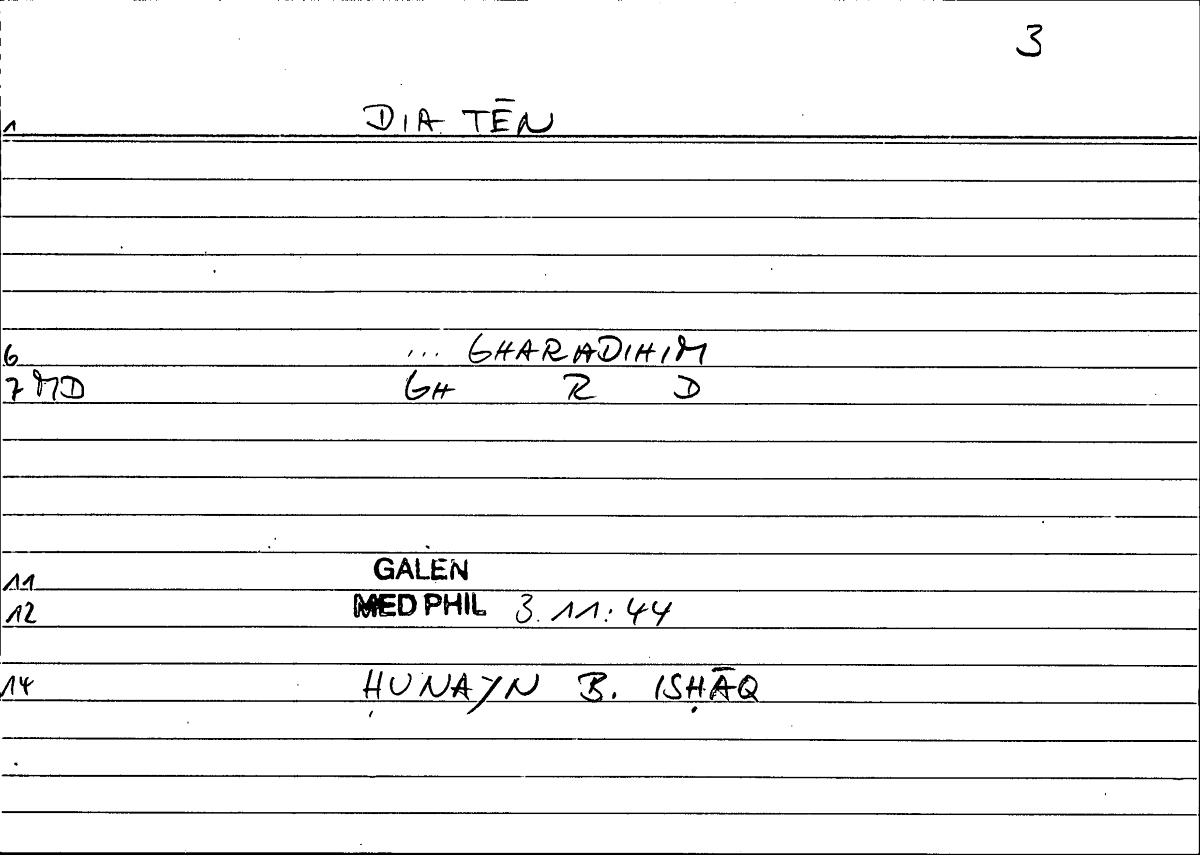 3
1 DIA TĒN
6 ... GHARADIHIM
7 MD GH R D
11 GALEN
12 MED PHIL 3.11:44
14 ḤUNAYN B. ISḤĀQ